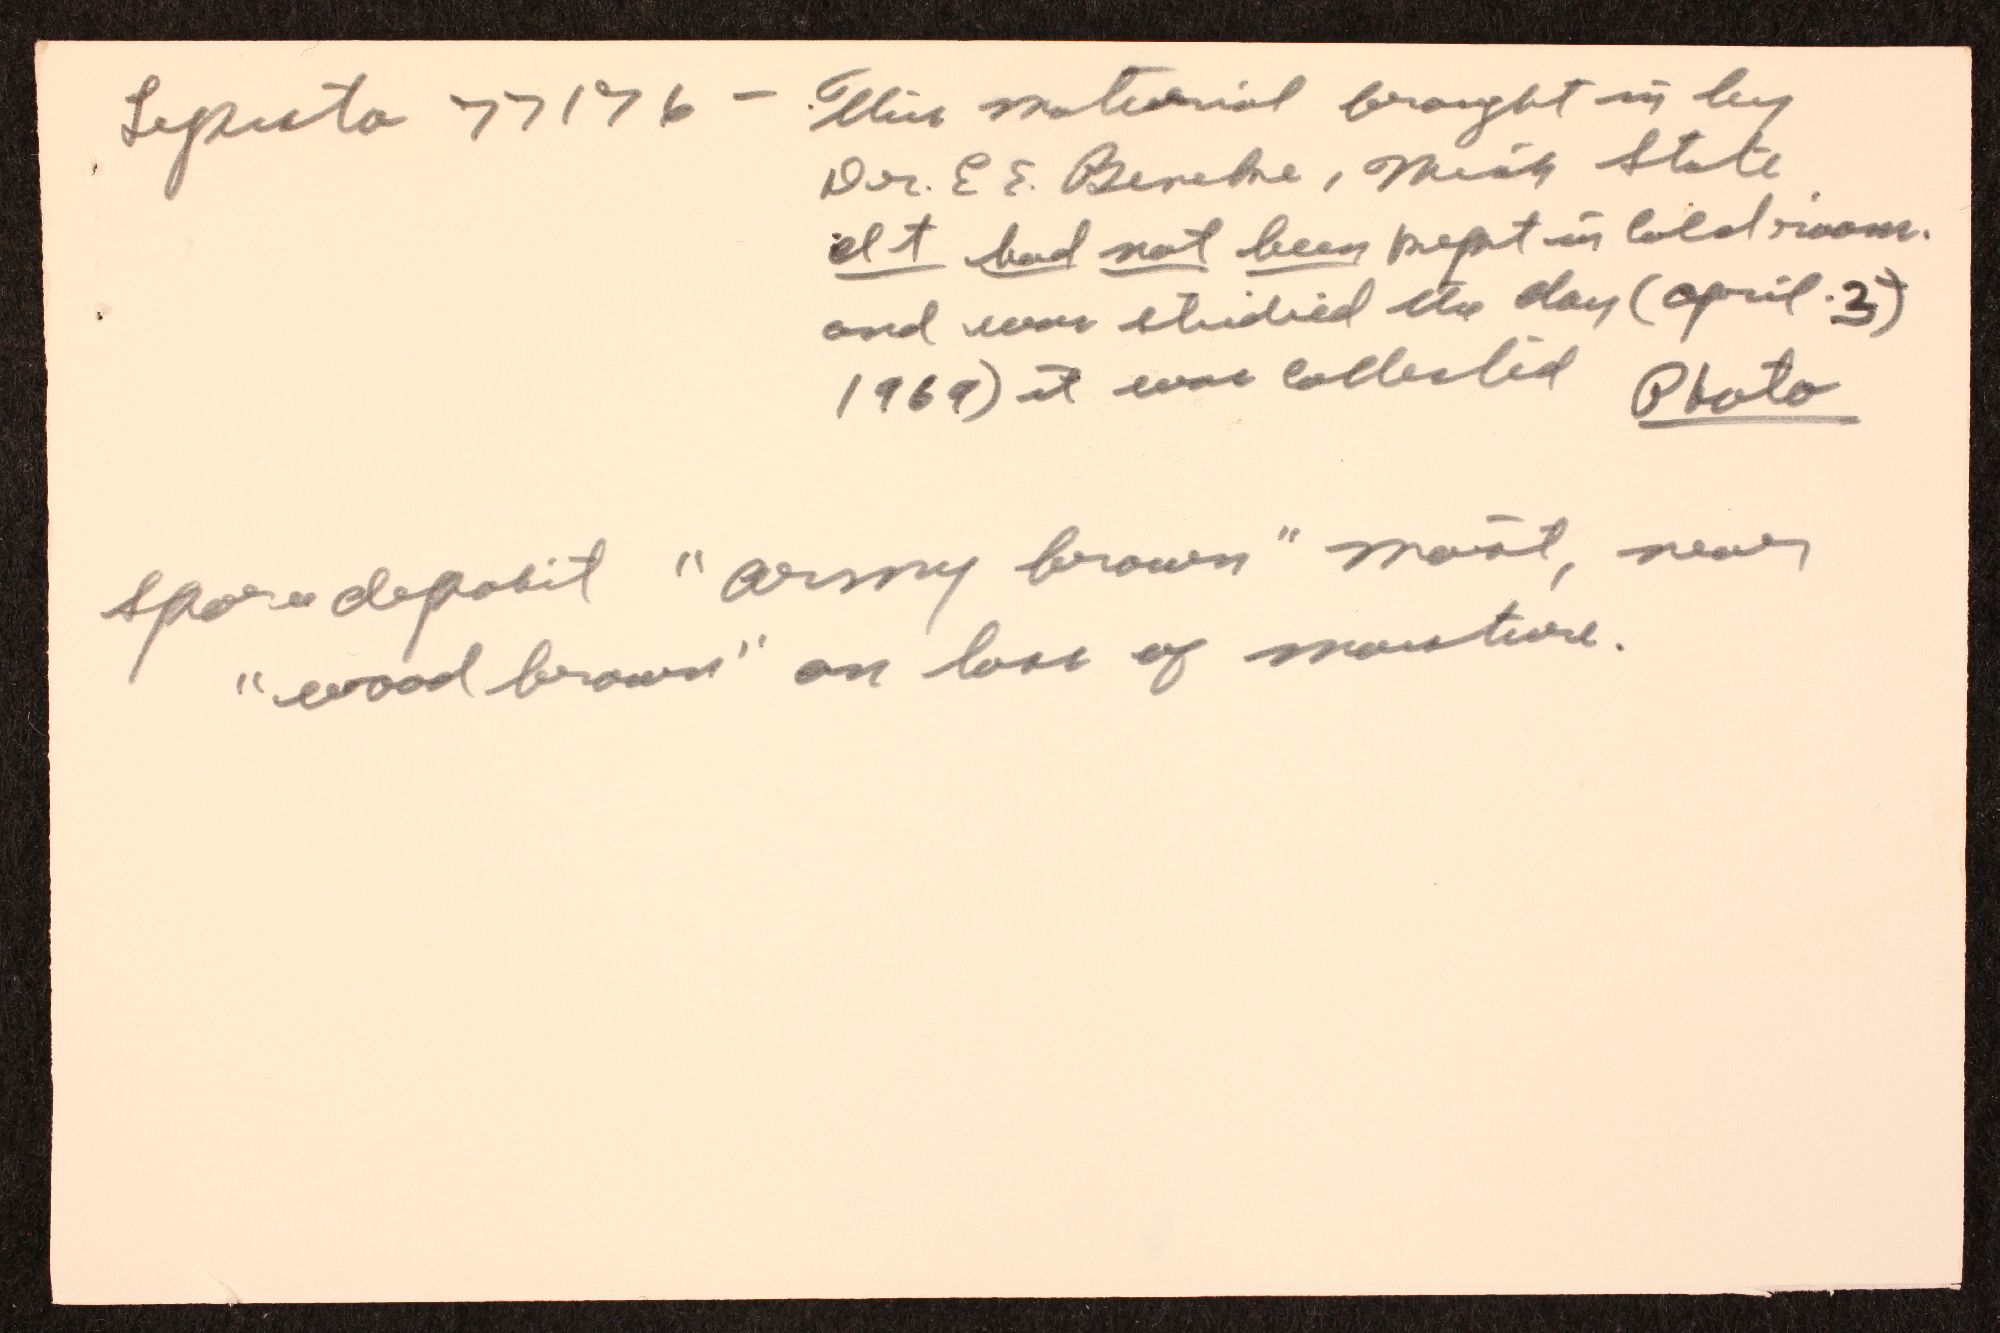 Lepista 77176 - This material brought in by
Dr. E E. Beneke, Mich State
It had not been kept in cold room.
and was studied the day (April 3
1969) it was collected Photo
Spore deposit "army brown" moist, near
"wood brown" on loss of moisture.